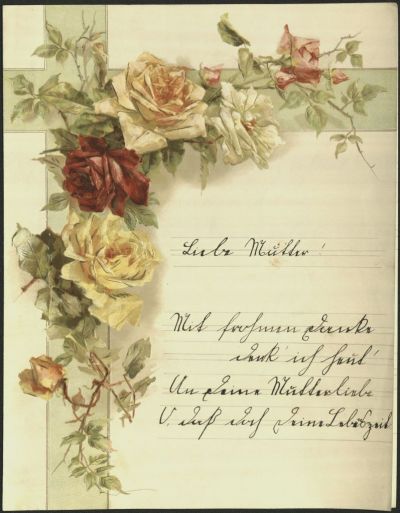 Liebe Mutter!
Mit frohmen Danke
denk' ich heut'
An deine Mutterliebe
U. daß doch deine Lebeszeit